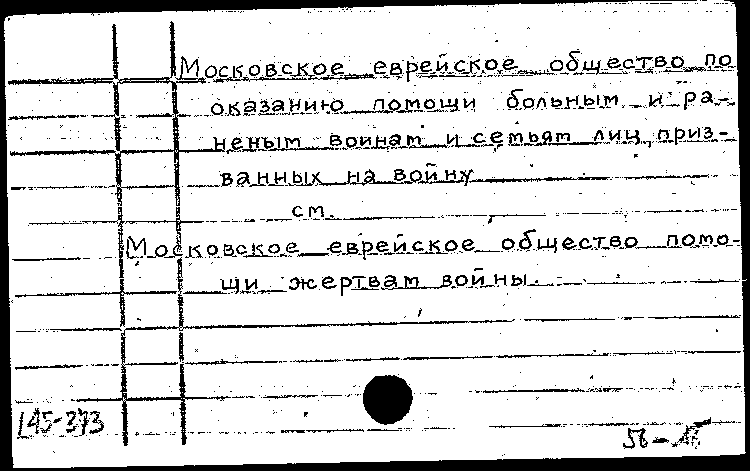 Московское еврейское общество по
оказанию помощи больным и ра-
неным воинам и семьям лиц, приз-
ванных на войну
см.
Московское еврейское общество помо-
щи жертвам войны.
145-373